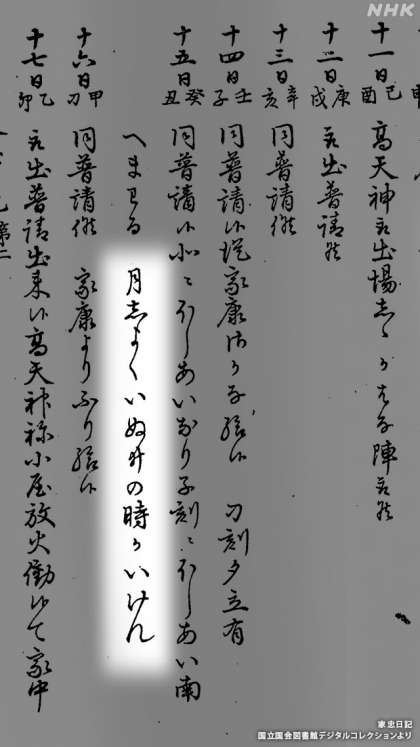 NHK
十一日 己酉 高天神 出場 陣取候
十二日 庚戌 取出普請候
十三日 辛亥 同普請候
十四日 壬子 同普請候 家康 給候 刁刻夕立有
十五日 癸丑 同普請候北ニほしあいあり子刻ニほしあい南
へまわる 月しよくいぬ井の時かいけん
十六日 甲刁 同普請候 家康よりふり給候
十七日 乙卯 取出普請出来候高天神 小屋放火働候て家中
家忠日記
国立国会図書館デジタルコレクションより